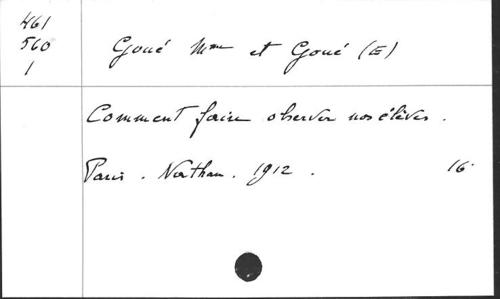 461
560
1
Goué Mme et Goué (E)
Comment faire observer nos élèves.
Paris. Nathan. 1912.
16